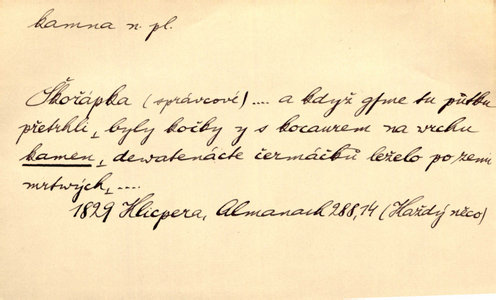 kamna n. pl.
Škořápka (správcové) .... a když gsme tu půtku
přetrhli, byly kočky y s kocaurem na wrchu
kamen, dewatenácte čermáčků leželo po zemi
mrtwých, ....
1829 Klicpera, Almanach 288,14 (Každý něco)